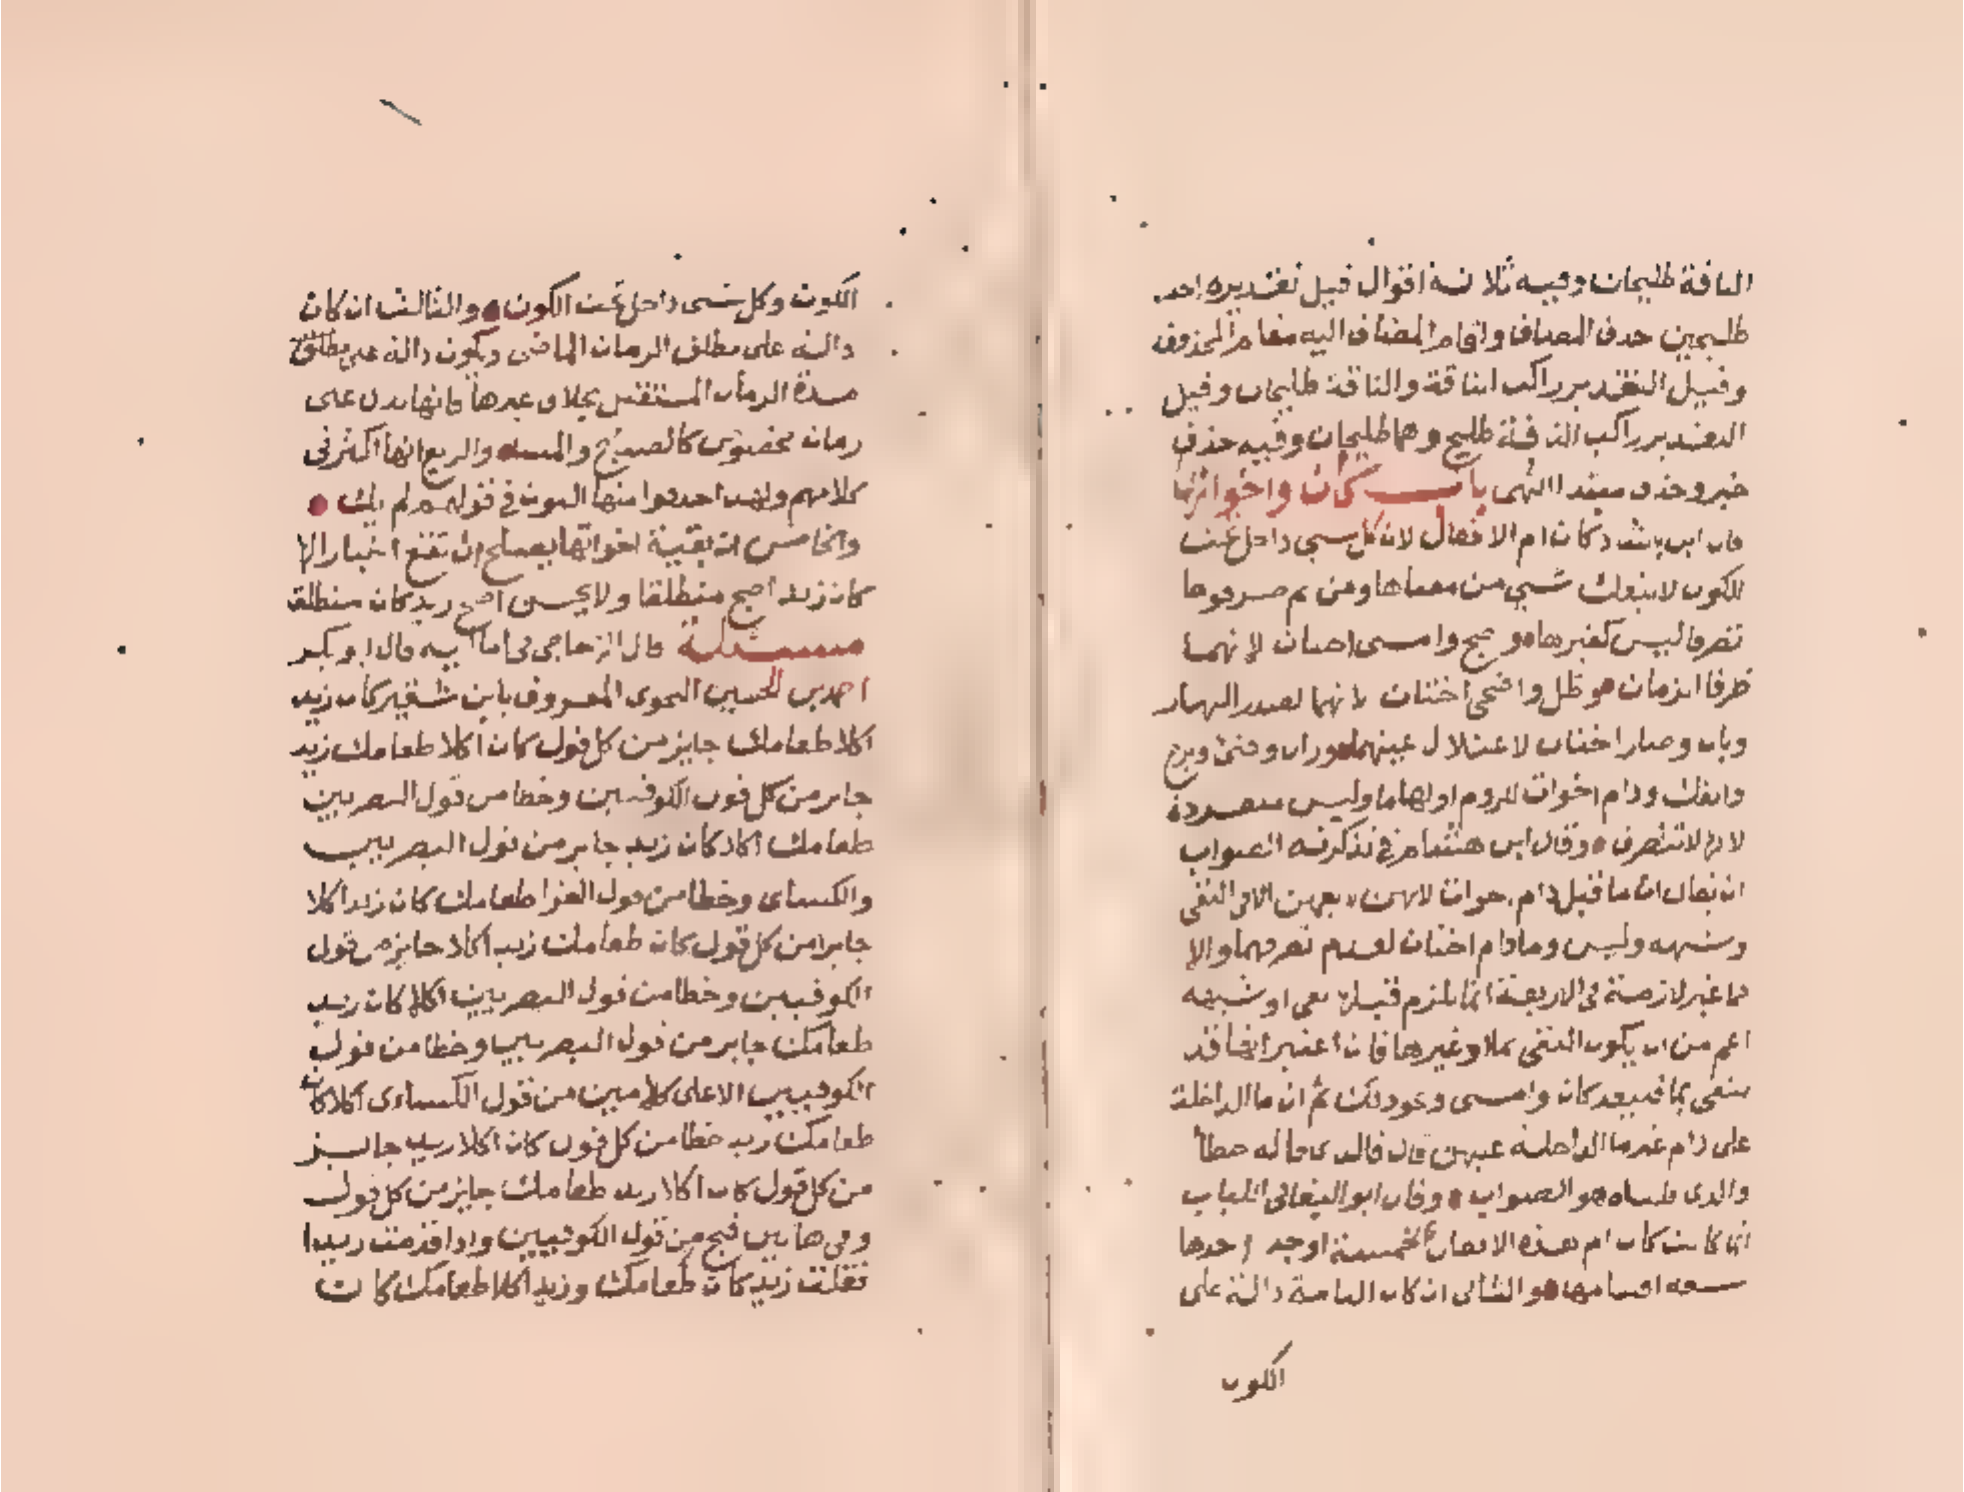 الناقة طليحان وفيه ثلاثة اقوال قيل تقديره احد
طليحين حذف المضاف واقام المضاف اليه مقام المحذوف
وقيل التقدير راكب الناقة والناقة طليحان وقيل
التقدير راكب الناقة طليح وهما طليحان وفيه حذف
خبر وحذف مبتدا انتهى باب كان واخواتها
قال ابن بابشاد كان ام الافعال لان كل شي داخل تحت
الكون لا ينفك شي من معناها ومن ثم صرفوها
تصرفا ليس كغيرها واصبح وامسى اختان لانهما
طرفا الزمان وظل واضحى اختان لانهما لصدر النهار
وبات وصار اختان لاعتلال عينهما وزال وفتئ وبرح
وانفك ودام اخوات للزوم اولها ما وليس منفردة
لانها لا تتصرف وقال ابن هشام في تذكرته الصواب
ان يقال ان ما قبل دام اخوات لانهن يعهن الا في النفي
وشبهه وليس وما دام اختان لعدم تصرفهما والا
فما غير لازمة في الاربعة انما يلزم قبلها نفي او شبهه
اعم من ان يكون النفي بما او غيرها فان اعتبر انها قد
تنفى بما فيعد كان وامسى ونحو ذلك ثم ان ما الداخلة
على دام غير ما الداخلة عليهن قال فالذي قاله خطأ
والذي قلناه هو الصواب وقال ابو البقا في اللباب
انما كانت كان ام هذه الافعال لخمسة اوجه احدها
سعة اقسامها والثاني ان كان التامة دالة على
الكون
الكون وكل شي داخل تحت الكون والثالث ان كان
دالة على مطلق الزمان الماضي ويكون دالة على مطلق
مدة الزمان المستقبل بخلاف غيرها فانها تدل على
زمان مخصوص كالصبح والمساء والرابع انها اكثر في
كلامهم ولهذا حذفوا منها النون في قولهم لم يك
والخامس ان بقية اخواتها يصلح ان تقع اخبارا لها
كان زيد اصبح منطلقا ولا يحسن اصبح زيد كان منطلقا
مسئلة قال الزجاجي في اماليه قال ابو بكر
احمد بن الحسين النحوي المعروف بابن شقير كان زيد
اكلا طعامك جايز من كل قول كان اكلا طعامك زيد
جايز من كل قول الكوفيين وخطا من قول البصريين
طعامك اكلا كان زيد جايز من قول البصريين
والكساي وخطا من قول الفرا طعامك كان زيد اكلا
جايز من كل قول كان طعامك زيد اكلا جايز من قول
الكوفيين وخطا من قول البصريين اكلا كان زيد
طعامك جايز من قول البصريين وخطا من قول
الكوفيين الا على كلامين من قول الكساي اكلا كان
طعامك زيد خطا من كل قول كان اكلا زيد جايز
من كل قول كان اكلا زيد طعامك جايز من كل قول
وفي هاتين قبح من قول الكوفيين واذا قدمت زيدا
فقلت زيد كان طعامك وزيد اكلا طعامك كان